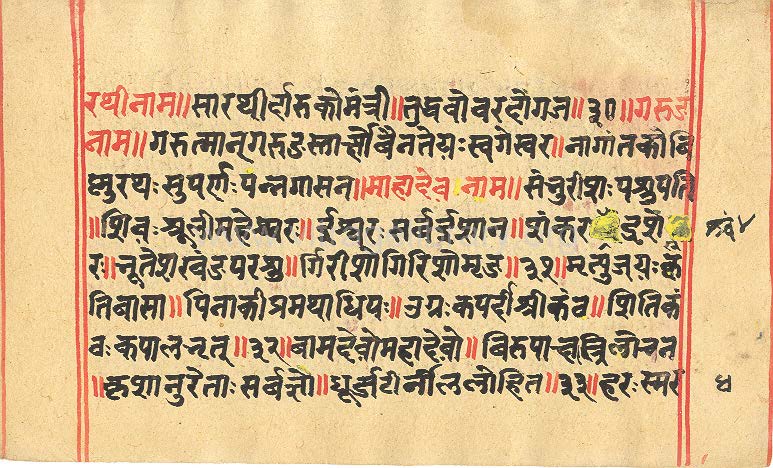 रथीनाम॥सारथीर्दारुकोमंत्री॥तुद्धवोवरहौगज॥३०॥गरुड
नाम॥गरुत्मान्गरुडस्तार्क्ष्योवैनतेयःखगेस्वर॥नागांतकोवि
ष्णुरथःसुपर्णःपंन्नगासन॥माहादेवनाम॥संचुरीशःपश्रुपति
॥शिवःश्रूलीमहेश्वरः॥ईश्वरःसर्वईशान॥शंकर
रः॥भूतेशखंडपरश्रु॥गिरीशोगिरिशोमृड॥३१॥मत्युजयःकृ
तिबासा॥पिनाकीप्रमथाधिपः॥उग्रःकपर्दीश्रीकंव॥शितिकं
वःकपालभृत्॥३२॥बामदेवोमहादेवो॥बिरुपाक्षत्रिलोचन
॥कृशानुरेताःसर्वज्ञो॥धूर्ज्जटीर्नीललोहित॥३३॥हरःस्मर